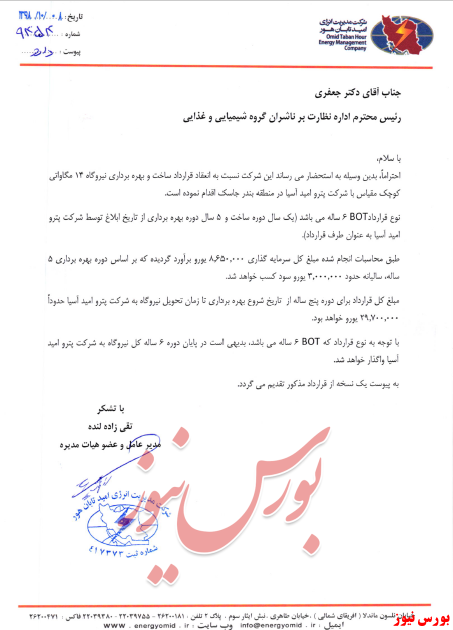 شرکت مدیریت انرژی
امید تابان هور
Omid Taban Hoor
Energy Management
Company
تاریخ: ۱۳۹۸/۱۰/۰۸
شماره: ۹۴۵۱۴
پیوست: دارد
جناب آقای دکتر جعفری
رئیس محترم اداره نظارت بر ناشران گروه شیمیایی و غذایی
با سلام،
احتراماً، بدین وسیله به استحضار می رساند این شرکت نسبت به انعقاد قرارداد ساخت و بهره برداری نیروگاه ۱۴ مگاواتی
کوچک مقیاس با شرکت پترو امید آسیا در منطقه بندر جاسک اقدام نموده است.
نوع قراردادBOT ۶ ساله می باشد (یک سال دوره ساخت و ۵ سال دوره بهره برداری از تاریخ ابلاغ توسط شرکت پترو
امید آسیا به عنوان طرف قرارداد).
طبق محاسبات انجام شده مبلغ کل سرمایه گذاری ۸,۶۵۰,۰۰۰ یورو برآورد گردیده که بر اساس دوره بهره برداری ۵
ساله، سالیانه حدود ۳,۰۰۰,۰۰۰ یورو سود کسب خواهد شد.
مبلغ کل قرارداد برای دوره پنج ساله از تاریخ شروع بهره برداری تا زمان تحویل نیروگاه به شرکت پترو امید آسیا حدوداً
۲۹,۷۰۰,۰۰۰ یورو خواهد بود.
با توجه به نوع قرارداد که BOT ۶ ساله می باشد، بدیهی است در پایان دوره ۶ ساله کل نیروگاه به شرکت پترو امید
آسیا واگذار خواهد شد.
به پیوست یک نسخه از قرارداد مذکور تقدیم می گردد.
با تشکر
تقی زاده لنده
مدیر عامل و عضو هیات مدیره
شرکت مدیریت انرژی امید تابان هور
شماره ثبت ۴۱۷۳۷۳
بورس نیوز
خیابان نلسون ماندلا (آفریقای شمالی)، خیابان طاهری، نبش ایثار سوم، پلاک ۲ تلفن: ۲۶۲۰۰۱۸۱ - ۲۲۰۳۹۷۵۵ - ۲۲۰۳۹۳۸۰ فاکس: ۲۶۲۰۰۲۷۱
ایمیل: info@energyomid.ir وب سایت: www.energyomid.ir
بورس نیوز